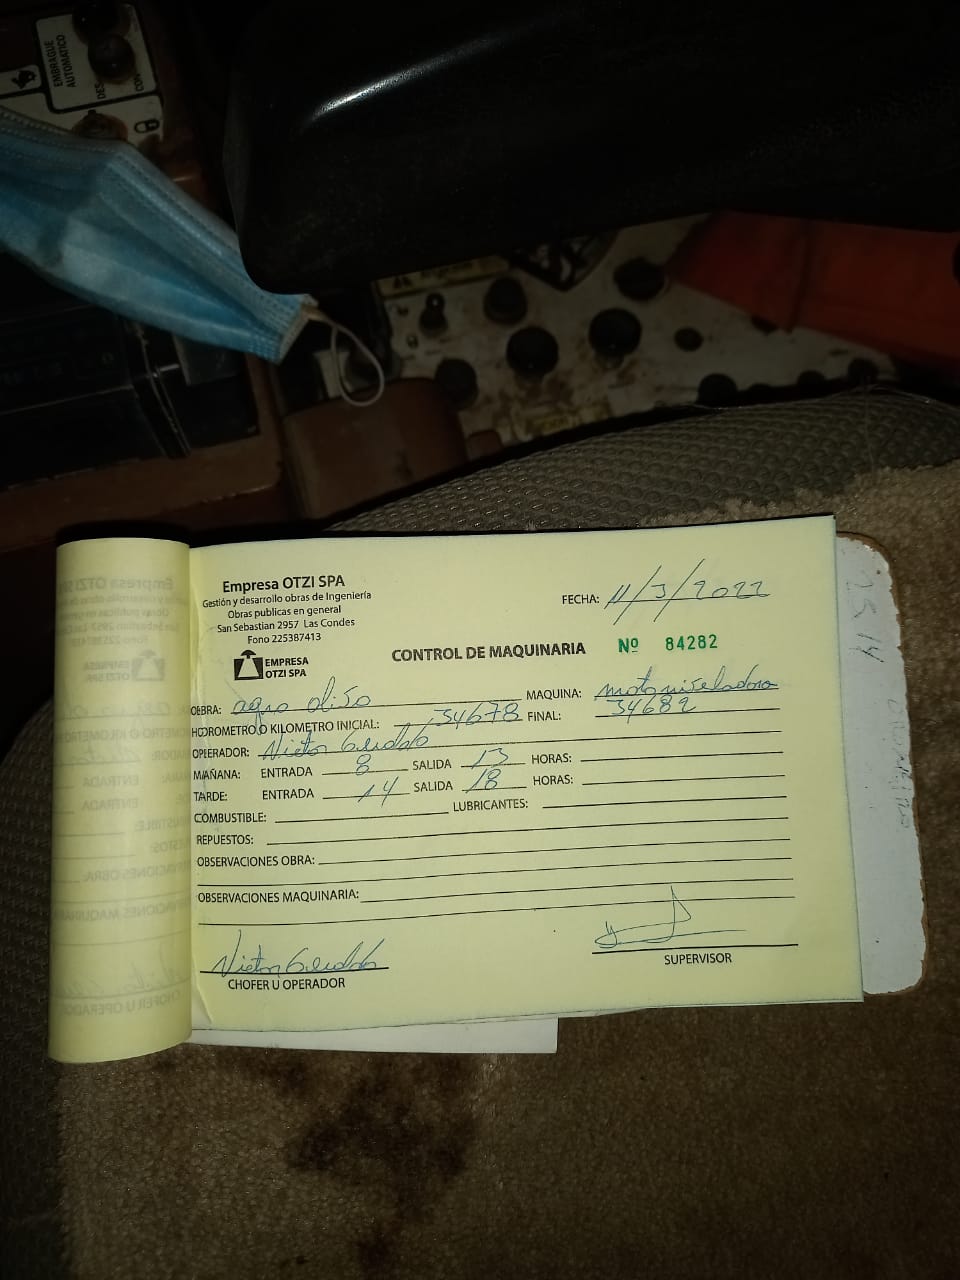 EMBRAGUE
AUTOMATICO
DES
CON
Empresa OTZI SPA
Gestión y desarrollo obras de Ingeniería
Obras publicas en general
San Sebastian 2957 Las Condes
Fono 225387413
EMPRESA
OTZI SPA
FECHA: 11/3/2022
CONTROL DE MAQUINARIA Nº 84282
OBRA: agro oliso MAQUINA: motoniveladora
HODROMETRO O KILOMETRO INICIAL: 34678 FINAL: 34682
OPERADOR: Victor
MAÑANA: ENTRADA 8 SALIDA 13 HORAS:
TARDE: ENTRADA 14 SALIDA 18 HORAS:
COMBUSTIBLE: LUBRICANTES:
REPUESTOS:
OBSERVACIONES OBRA:
OBSERVACIONES MAQUINARIA:
Victor
CHOFER U OPERADOR
SUPERVISOR